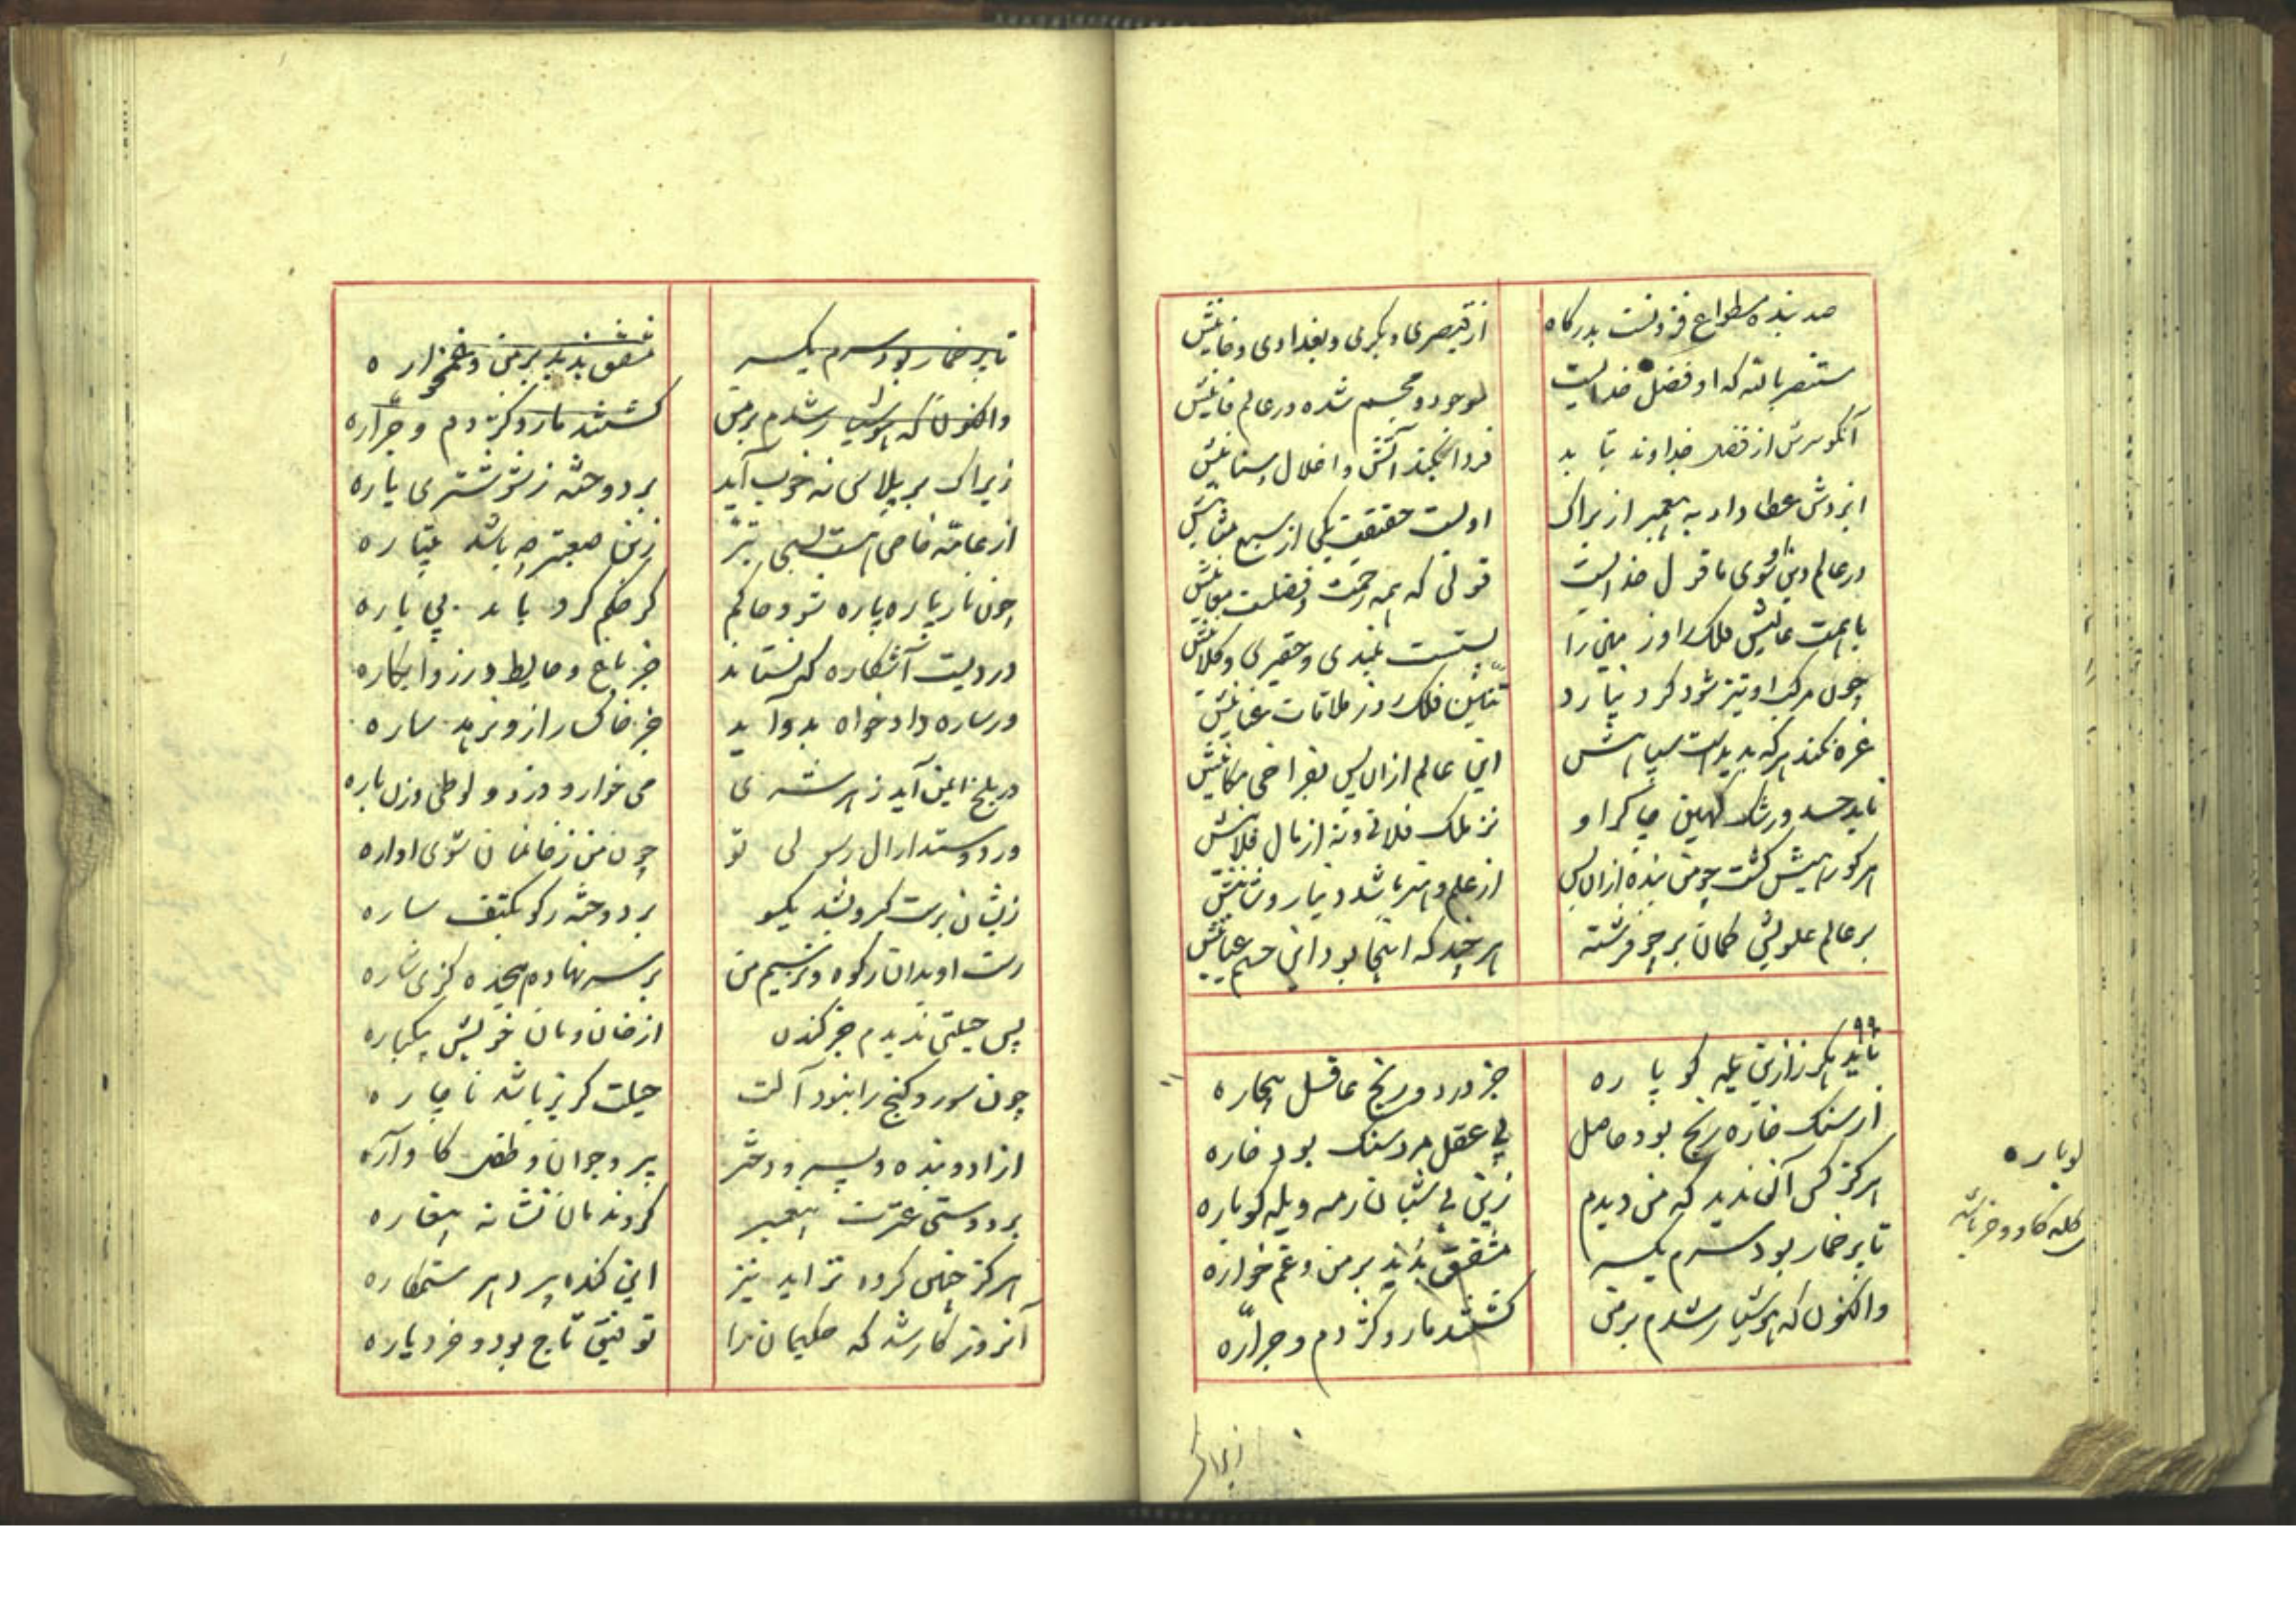 صد بنده مطواع فزونست بدرگاه از قیصری و بکری و بغدادی و خانیش
مستنصر بالله که او فضل خدایست موجود و مجسم شده در عالم فانیش
آنکو سرش از فضل خداوند بتابد فردا بکند آتش و اغلال
ایزدش عطا داد به پیغمبر ازیراک اوست حقیقت یکی از سبع مثانیش
در عالم دین قول خدایست قولی که همه رحمت و فضلست معانیش
با همت عالیش فلک را و زمین را پستست بلندی و حقیری و کلانیش
چون مرکب او تیز شود کرد نیارد تنین فلک روز ملاقات عنانیش
غره نکند هرکه بدیدست سپاهش این عالم ازان پس بفراخی مکانیش
ناید حسد و رشک کهین چاکر او نز ملک فلانی و نه از مال فلانیش
هرکو رهیش گشت چو من بنده ازان پس از علم و هنر باشد دینار و شیانیش
بر عالم علویش گمان بر چو فرشته هرچند که اینجا بود این جسم عیانیش
۹۹
ناید هگرز ازین یله گو باره جز درد و رنج عاقل بیچاره
از سنگ خاره رنج بود حاصل بی عقل مرد سنگ بود خاره
هرگز کس آن ندید که من دیدم زین بی شبان رمه و یله گو باره
تا پر خمار بود سرم یکسر مشفق بدند بر من و غم خواره
واکنون که هوشیار شدم بر من گشتند مار و کژدم و جراره
گوباره
گله گاو و خر باشد
زیراک
تا پر خمار بود سرم یکسر مشفق بدند بر من و غمخواره
واکنون که هوشیار شدم بر من گشتند مار و کژدم و جراره
زیراک بر پلاس نه خوب آید بر دوخته ز شوشتری پاره
از عامه خاص هست بسی بتر زین صعبتر چه باشد پتیاره
چون نار پاره پاره شود حاکم گر حکم کرد باید بی پاره
ور دیت آشکاره که نستاند جز باغ و حایط و رز و ابکاره
ور ساره دادخواه بدو آید جز خاکسار ازو نرهد ساره
در بلخ ایمن آید ز هر شری می خوار و دزد و لوطی و زن باره
ور دوستدار ال رسولی تو چون من ز خانمان شوی اواره
زیشان برست گبر و بشد یکسو بر دوخته رکو بکتف ساره
رست او بدان رکوه و نرستم من بر سر نهاده هجده گزی شاره
پس حیلتی ندیدم جز کندن از خان و مان خویش بیکباره
چون شور و گنج را نبود آلت حیلت گریز باشد ناچاره
ازاد و بنده و پسر و دختر پیر و جوان و طفل گاواره
بر دوستی عترت پیغمبر کردندمان نشانه بیغاره
هرگز چنین گروه نزاید نیز این گنده پیر دهر ستمکاره
آنروز کار شد که حکیمان را توفیق تاج بود و خرد یاره